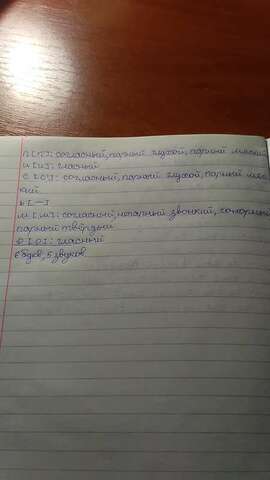 п [п']: согласный, парный глухой, парный мягкий
и [и]: гласный
с [с']: согласный, парный глухой, парный мяг-
кий
ь [–]
м [м]: согласный, непарный звонкий, сонорный
парный твёрдый
о [о]: гласный
6 букв, 5 звуков